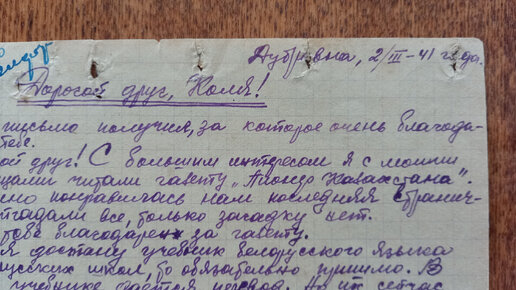 Дубровна, 2/III-41 года.
Дорогой друг, Коля!
письмо получил, за которое очень благода-
тебе.
ой друг! С большим интересом я с моими
щами читали газету „Пионер Казахстана".
но понравилась нам последняя странич-
тгадали все, только загадку нет.
тебе благодарен за газету.
я достану учебник белорусского языка
школ, то обязательно пришлю. В
учебнике дается перевод. А их сейчас